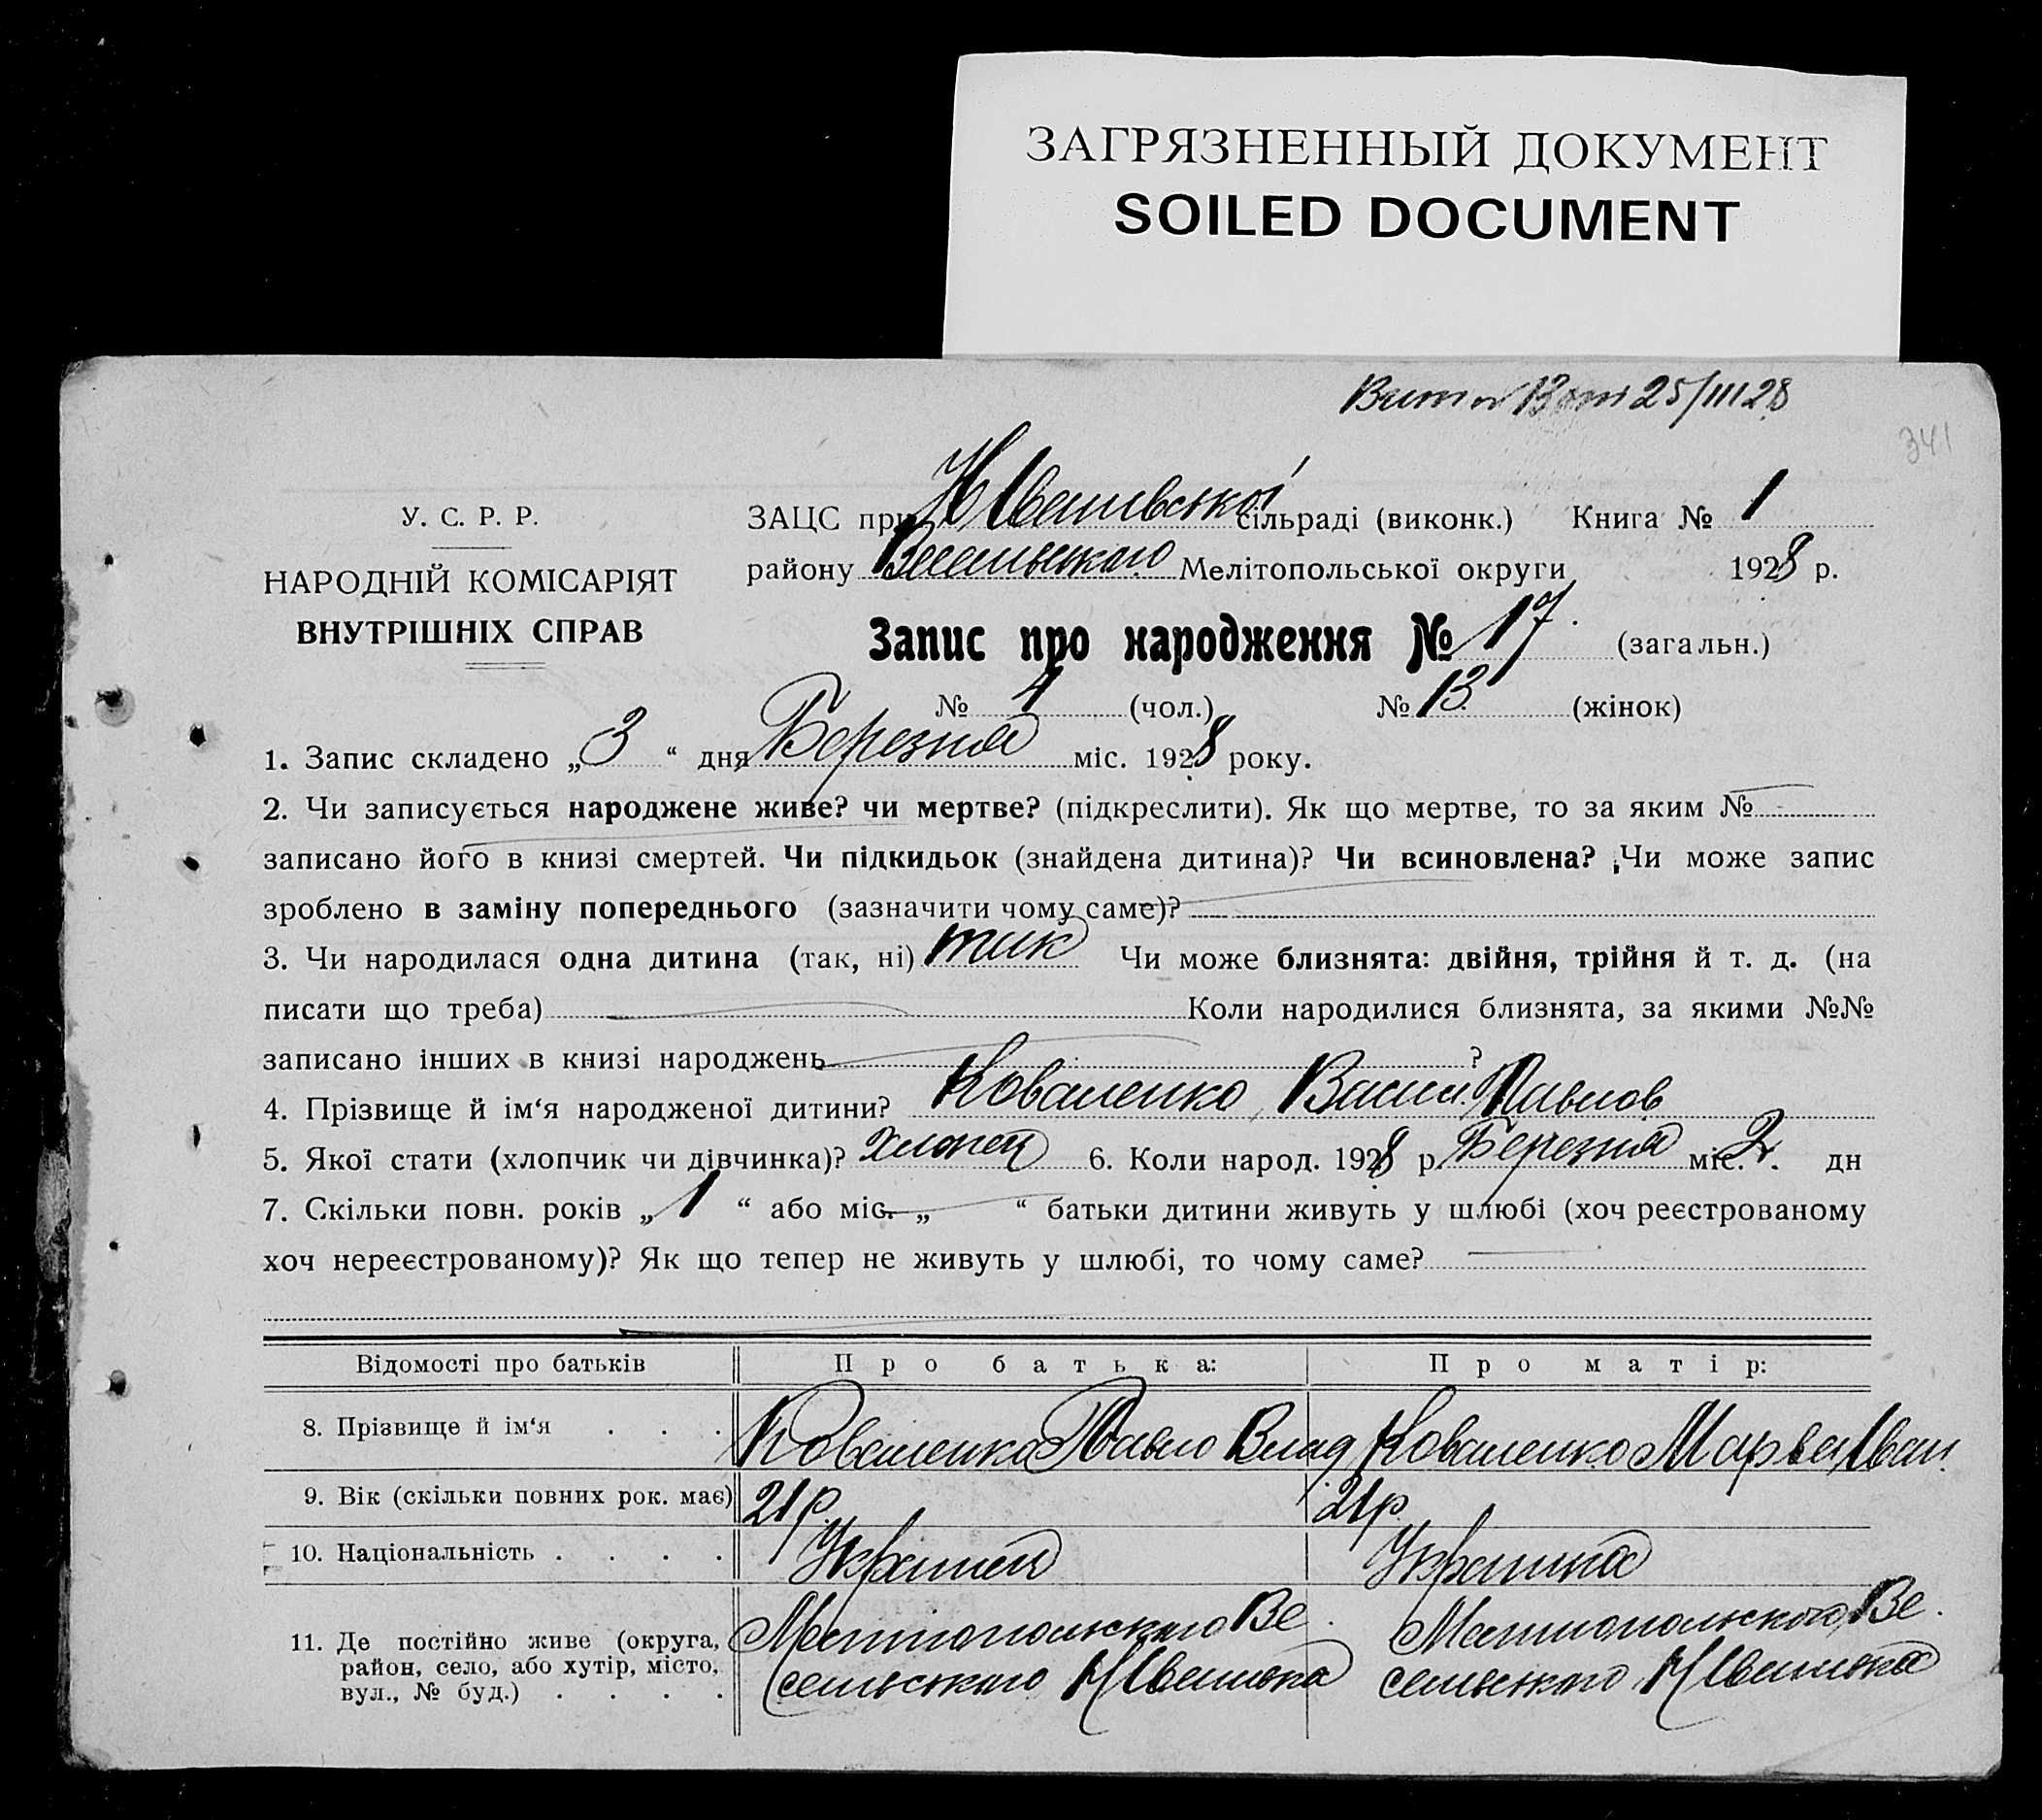 ЗАГРЯЗНЕННЫЙ ДОКУМЕНТ
SOILED DOCUMENT
25/III 28
341
У. С. Р. Р.
НАРОДНІЙ КОМІСАРІЯТ
ВНУТРІШНІХ СПРАВ
ЗАЦС при сільраді (виконк.) Книга № 1
району Веселівського Мелітопольської округи 1928 р.
Запис про народження № 17. (загальн.)
№ 4 (чол.) № 13 (жінок)
1. Запис складено „ 3 “ дня Березня міс. 1928 року.
2. Чи записується народжене живе? чи мертве? (підкреслити). Як що мертве, то за яким №
записано його в книзі смертей. Чи підкидьок (знайдена дитина)? Чи всиновлена? Чи може запис
зроблено в заміну попереднього (зазначити чому саме)?
3. Чи народилася одна дитина (так, ні) так Чи може близнята: двійня, трійня й т. д. (на
писати що треба) Коли народилися близнята, за якими №№
записано інших в книзі народжень ?
4. Прізвище й ім‘я народженої дитини? Коваленко Васил. Павлов
5. Якої стати (хлопчик чи дівчинка)? Хлопец 6. Коли народ. 1928 р. Березня міс. 2. дн
7. Скільки повн. років „ 1 “ або міс. „ “ батьки дитини живуть у шлюбі (хоч реєстрованому
хоч нереєстрованому)? Як що тепер не живуть у шлюбі, то чому саме?
Відомості про батьків Про батька: Про матір:
8. Прізвище й ім‘я . . . Коваленко Павло Влад Коваленко Марѳа Іван.
9. Вік (скільки повних рок. має) 21 р. 21 р
10. Національність . . . . Украінец Украинка
11. Де постійно живе (округа, Мелітопольского Ве. Мелитопольского Ве.
район, село, або хутір, місто, сельського сельського
вул., № буд.) . . . .